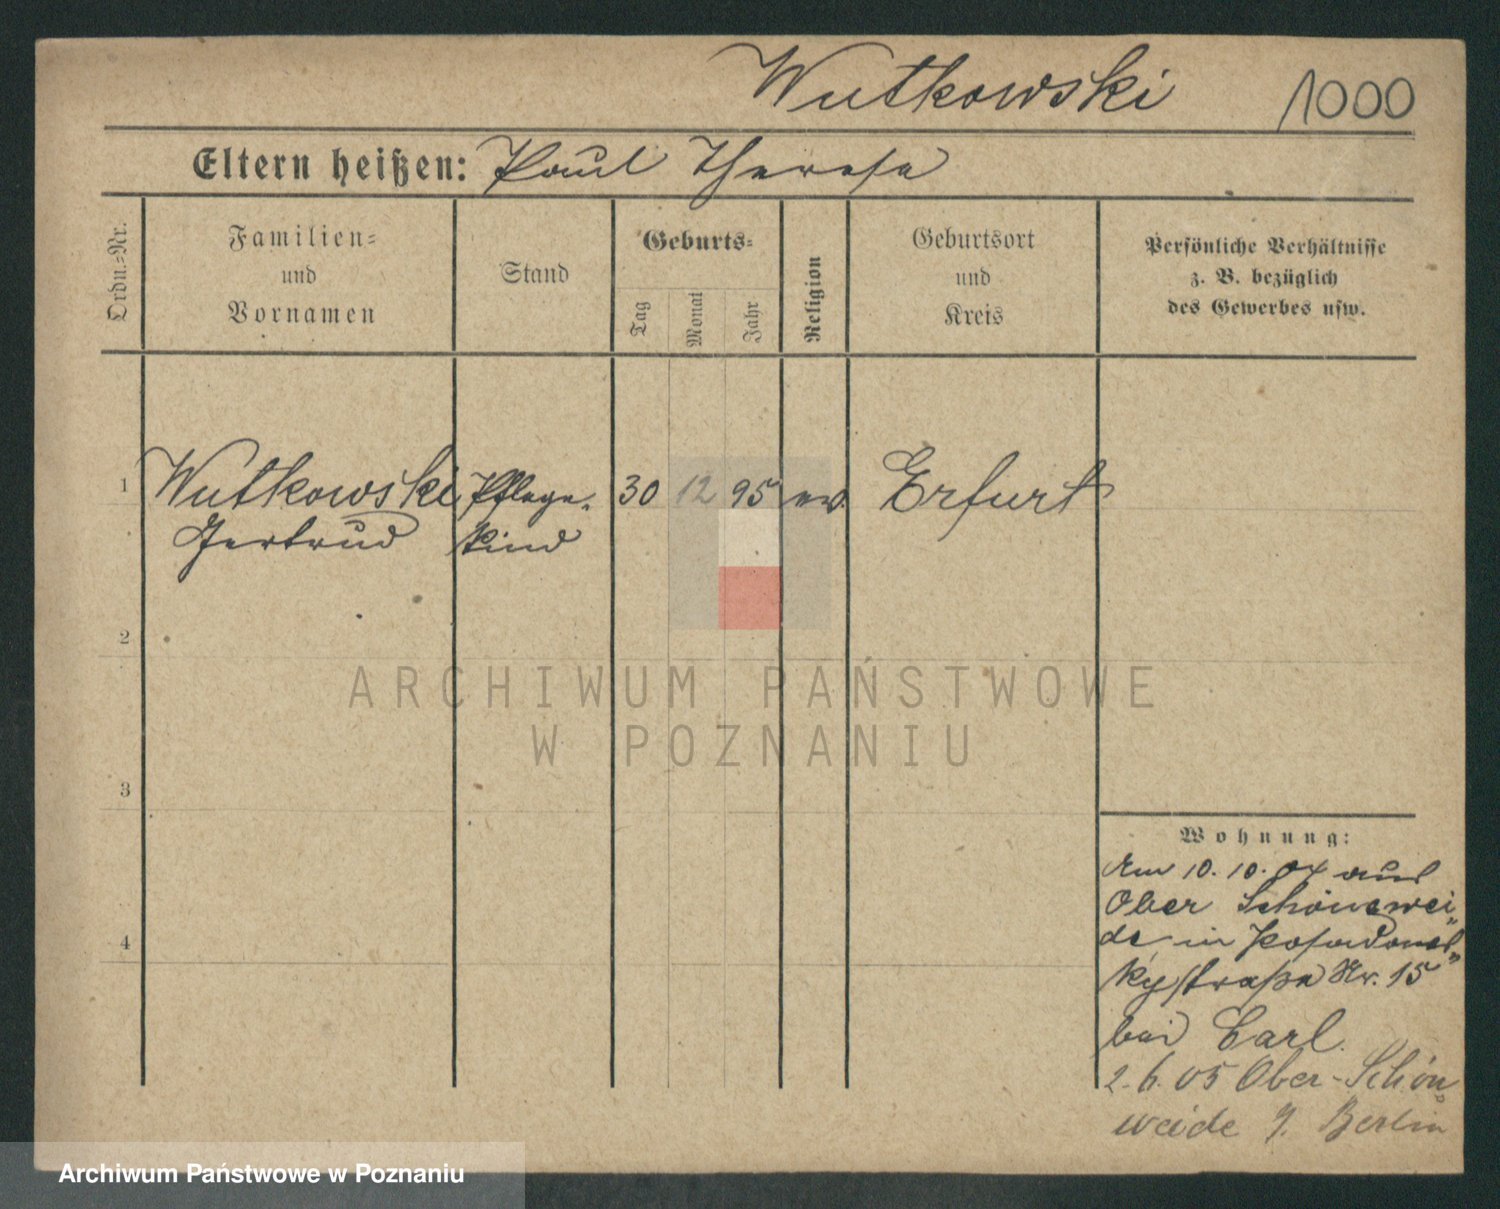 Wutkowski 1000
Eltern heißen: Paul Therese
Ordn.=Nr.
Familien=
und
Vornamen
Stand
Geburts=
Tag
Monat
Jahr
Religion
Geburtsort
und
Kreis
Persönliche Verhältnisse
z. B. bezüglich
des Gewerbes usw.
1 Wutkowski Pflege- 30 12 95 ev. Erfurt
Gertrud kind
2
ARCHIWUM PAŃSTWOWE
W POZNANIU
3
Wohnung:
Am 10. 10. 04 aus
Ober Schönewei„
de in
4
kystraße Nr. 15
bei Carl.
2. 6. 05 Ober-Schön„
weide Berlin
Archiwum Państwowe w Poznaniu